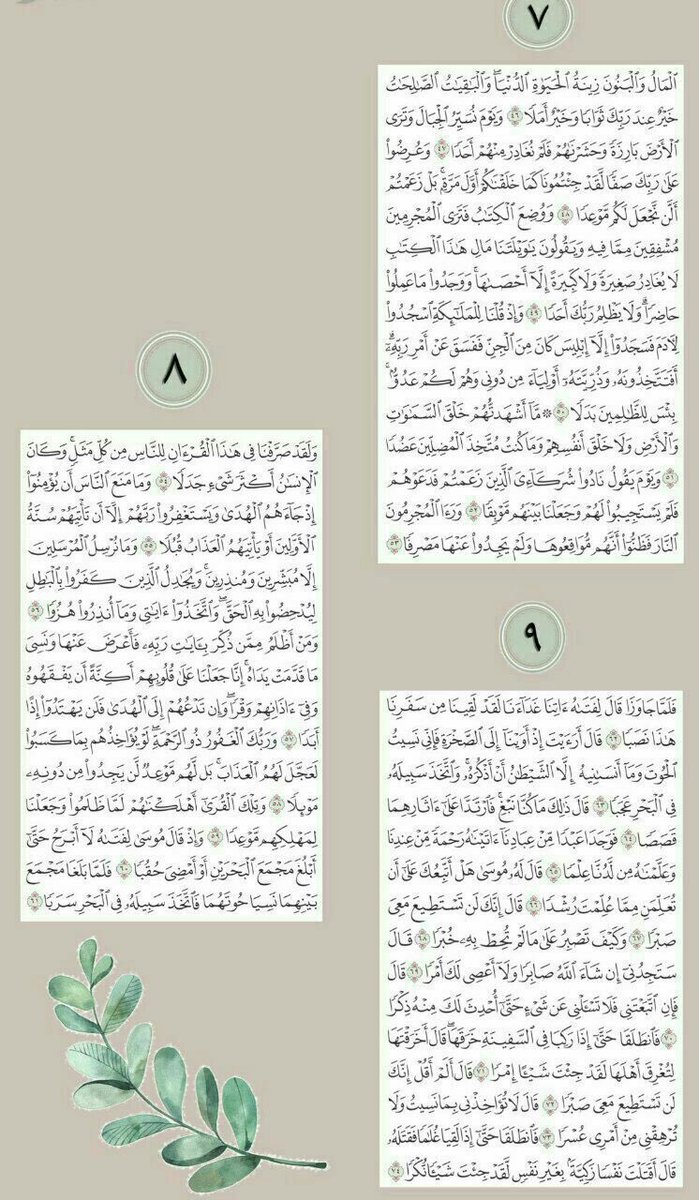 ٧
ٱلْمَالُ وَٱلْبَنُونَ زِينَةُ ٱلْحَيَوٰةِ ٱلدُّنْيَا ۖ وَٱلْبَٰقِيَٰتُ ٱلصَّٰلِحَٰتُ
خَيْرٌ عِندَ رَبِّكَ ثَوَابًا وَخَيْرٌ أَمَلًا ٤٦ وَيَوْمَ نُسَيِّرُ ٱلْجِبَالَ وَتَرَى
ٱلْأَرْضَ بَارِزَةً وَحَشَرْنَٰهُمْ فَلَمْ نُغَادِرْ مِنْهُمْ أَحَدًا ٤٧ وَعُرِضُوا۟
عَلَىٰ رَبِّكَ صَفًّا لَّقَدْ جِئْتُمُونَا كَمَا خَلَقْنَٰكُمْ أَوَّلَ مَرَّةٍۭ ۚ بَلْ زَعَمْتُمْ
أَلَّن نَّجْعَلَ لَكُم مَّوْعِدًا ٤٨ وَوُضِعَ ٱلْكِتَٰبُ فَتَرَى ٱلْمُجْرِمِينَ
مُشْفِقِينَ مِمَّا فِيهِ وَيَقُولُونَ يَٰوَيْلَتَنَا مَالِ هَٰذَا ٱلْكِتَٰبِ
لَا يُغَادِرُ صَغِيرَةً وَلَا كَبِيرَةً إِلَّآ أَحْصَىٰهَا ۚ وَوَجَدُوا۟ مَا عَمِلُوا۟
حَاضِرًا ۗ وَلَا يَظْلِمُ رَبُّكَ أَحَدًا ٤٩ وَإِذْ قُلْنَا لِلْمَلَٰٓئِكَةِ ٱسْجُدُوا۟
لِـَٔادَمَ فَسَجَدُوٓا۟ إِلَّآ إِبْلِيسَ كَانَ مِنَ ٱلْجِنِّ فَفَسَقَ عَنْ أَمْرِ رَبِّهِۦٓ ۗ
أَفَتَتَّخِذُونَهُۥ وَذُرِّيَّتَهُۥٓ أَوْلِيَآءَ مِن دُونِى وَهُمْ لَكُمْ عَدُوٌّۢ ۚ
بِئْسَ لِلظَّٰلِمِينَ بَدَلًا ٥٠ ۞ مَّآ أَشْهَدتُّهُمْ خَلْقَ ٱلسَّمَٰوَٰتِ
وَٱلْأَرْضِ وَلَا خَلْقَ أَنفُسِهِمْ وَمَا كُنتُ مُتَّخِذَ ٱلْمُضِلِّينَ عَضُدًا
٥١ وَيَوْمَ يَقُولُ نَادُوا۟ شُرَكَآءِىَ ٱلَّذِينَ زَعَمْتُمْ فَدَعَوْهُمْ
فَلَمْ يَسْتَجِيبُوا۟ لَهُمْ وَجَعَلْنَا بَيْنَهُم مَّوْبِقًا ٥٢ وَرَءَا ٱلْمُجْرِمُونَ
ٱلنَّارَ فَظَنُّوٓا۟ أَنَّهُم مُّوَاقِعُوهَا وَلَمْ يَجِدُوا۟ عَنْهَا مَصْرِفًا ٥٣
٨
وَلَقَدْ صَرَّفْنَا فِى هَٰذَا ٱلْقُرْءَانِ لِلنَّاسِ مِن كُلِّ مَثَلٍ ۚ وَكَانَ
ٱلْإِنسَٰنُ أَكْثَرَ شَىْءٍ جَدَلًا ٥٤ وَمَا مَنَعَ ٱلنَّاسَ أَن يُؤْمِنُوٓا۟
إِذْ جَآءَهُمُ ٱلْهُدَىٰ وَيَسْتَغْفِرُوا۟ رَبَّهُمْ إِلَّآ أَن تَأْتِيَهُمْ سُنَّةُ
ٱلْأَوَّلِينَ أَوْ يَأْتِيَهُمُ ٱلْعَذَابُ قُبُلًا ٥٥ وَمَا نُرْسِلُ ٱلْمُرْسَلِينَ
إِلَّا مُبَشِّرِينَ وَمُنذِرِينَ ۚ وَيُجَٰدِلُ ٱلَّذِينَ كَفَرُوا۟ بِٱلْبَٰطِلِ
لِيُدْحِضُوا۟ بِهِ ٱلْحَقَّ ۖ وَٱتَّخَذُوٓا۟ ءَايَٰتِى وَمَآ أُنذِرُوا۟ هُزُوًا ٥٦
وَمَنْ أَظْلَمُ مِمَّن ذُكِّرَ بِـَٔايَٰتِ رَبِّهِۦ فَأَعْرَضَ عَنْهَا وَنَسِىَ
مَا قَدَّمَتْ يَدَاهُ ۚ إِنَّا جَعَلْنَا عَلَىٰ قُلُوبِهِمْ أَكِنَّةً أَن يَفْقَهُوهُ
وَفِىٓ ءَاذَانِهِمْ وَقْرًا ۖ وَإِن تَدْعُهُمْ إِلَى ٱلْهُدَىٰ فَلَن يَهْتَدُوٓا۟ إِذًا
أَبَدًا ٥٧ وَرَبُّكَ ٱلْغَفُورُ ذُو ٱلرَّحْمَةِ ۖ لَوْ يُؤَاخِذُهُم بِمَا كَسَبُوا۟
لَعَجَّلَ لَهُمُ ٱلْعَذَابَ ۚ بَل لَّهُم مَّوْعِدٌ لَّن يَجِدُوا۟ مِن دُونِهِۦ
مَوْئِلًا ٥٨ وَتِلْكَ ٱلْقُرَىٰٓ أَهْلَكْنَٰهُمْ لَمَّا ظَلَمُوا۟ وَجَعَلْنَا
لِمَهْلِكِهِم مَّوْعِدًا ٥٩ وَإِذْ قَالَ مُوسَىٰ لِفَتَىٰهُ لَآ أَبْرَحُ حَتَّىٰٓ
أَبْلُغَ مَجْمَعَ ٱلْبَحْرَيْنِ أَوْ أَمْضِىَ حُقُبًا ٦٠ فَلَمَّا بَلَغَا مَجْمَعَ
بَيْنِهِمَا نَسِيَا حُوتَهُمَا فَٱتَّخَذَ سَبِيلَهُۥ فِى ٱلْبَحْرِ سَرَبًا ٦١
٩
فَلَمَّا جَاوَزَا قَالَ لِفَتَىٰهُ ءَاتِنَا غَدَآءَنَا لَقَدْ لَقِينَا مِن سَفَرِنَا
هَٰذَا نَصَبًا ٦٢ قَالَ أَرَءَيْتَ إِذْ أَوَيْنَآ إِلَى ٱلصَّخْرَةِ فَإِنِّى نَسِيتُ
ٱلْحُوتَ وَمَآ أَنسَىٰنِيهُ إِلَّا ٱلشَّيْطَٰنُ أَنْ أَذْكُرَهُۥ ۚ وَٱتَّخَذَ سَبِيلَهُۥ
فِى ٱلْبَحْرِ عَجَبًا ٦٣ قَالَ ذَٰلِكَ مَا كُنَّا نَبْغِ ۚ فَٱرْتَدَّا عَلَىٰٓ ءَاثَارِهِمَا
قَصَصًا ٦٤ فَوَجَدَا عَبْدًا مِّنْ عِبَادِنَآ ءَاتَيْنَٰهُ رَحْمَةً مِّنْ عِندِنَا
وَعَلَّمْنَٰهُ مِن لَّدُنَّا عِلْمًا ٦٥ قَالَ لَهُۥ مُوسَىٰ هَلْ أَتَّبِعُكَ عَلَىٰٓ أَن
تُعَلِّمَنِ مِمَّا عُلِّمْتَ رُشْدًا ٦٦ قَالَ إِنَّكَ لَن تَسْتَطِيعَ مَعِىَ
صَبْرًا ٦٧ وَكَيْفَ تَصْبِرُ عَلَىٰ مَا لَمْ تُحِطْ بِهِۦ خُبْرًا ٦٨ قَالَ
سَتَجِدُنِىٓ إِن شَآءَ ٱللَّهُ صَابِرًا وَلَآ أَعْصِى لَكَ أَمْرًا ٦٩ قَالَ
فَإِنِ ٱتَّبَعْتَنِى فَلَا تَسْـَٔلْنِى عَن شَىْءٍ حَتَّىٰٓ أُحْدِثَ لَكَ مِنْهُ ذِكْرًا
٧٠ فَٱنطَلَقَا حَتَّىٰٓ إِذَا رَكِبَا فِى ٱلسَّفِينَةِ خَرَقَهَا ۖ قَالَ أَخَرَقْتَهَا
لِتُغْرِقَ أَهْلَهَا لَقَدْ جِئْتَ شَيْـًٔا إِمْرًا ٧١ قَالَ أَلَمْ أَقُلْ إِنَّكَ
لَن تَسْتَطِيعَ مَعِىَ صَبْرًا ٧٢ قَالَ لَا تُؤَاخِذْنِى بِمَا نَسِيتُ وَلَا
تُرْهِقْنِى مِنْ أَمْرِى عُسْرًا ٧٣ فَٱنطَلَقَا حَتَّىٰٓ إِذَا لَقِيَا غُلَٰمًا فَقَتَلَهُۥ
قَالَ أَقَتَلْتَ نَفْسًا زَكِيَّةًۢ بِغَيْرِ نَفْسٍ لَّقَدْ جِئْتَ شَيْـًٔا نُّكْرًا ٧٤